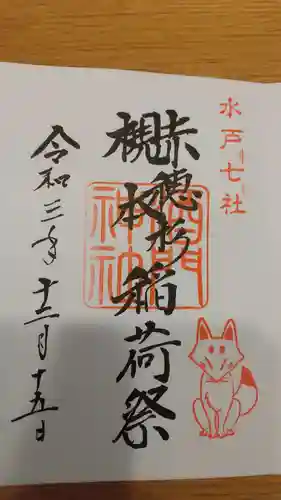 水戸七社
赤穂杉
槻本
稲荷祭
神社
令和三年十二月十五日